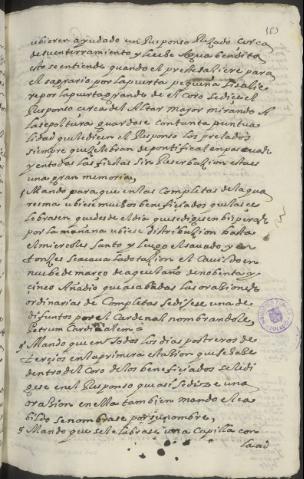 ubieren ayudado un Responso Rezado cerca
de su enterramiento y se eche Agua bendita
esto se entiende quando el preste saliere para
el sagrario por la puerta pequeña y se alie
re por la puerta grande de el Coro se dice el
Responso cerca del Altar mayor mirando A
la sepoltura guardase con tanta puntua
lidad que le dicen el Responso los prelados
siempre que celebran de pontifical en pascuas
y en todas las fiestas sin Reserbazion ella es
una gran memoria,
Mando para que en las Completas de la qua
resma ubiese muchos benefiziados que las ce
lebrasen que desde el dia que se digesen bisperas
por la mañana ubiese distribuzion hasta
el miercoles Santo y luego el sauado y en
tonzes se acaua la dotazion el Cavildo en
nuebe de março de aquel año de nobenta y
çinco Añadio que acabadas las oraziones
ordinarias de Completas se digese una de
difuntos por el Cardenal nombrandole
Petrum Cardinalem,
Mando que en todos los dias postreros de
terçios en la primera estazion que se haze
dentro del Coro de los benefiziados se le di
gese en el Responso que asi se dize una
orazion en ella tambien mando el ca
bildo se nombrase por su nombre,
Mando que se le labrase una Capilla con